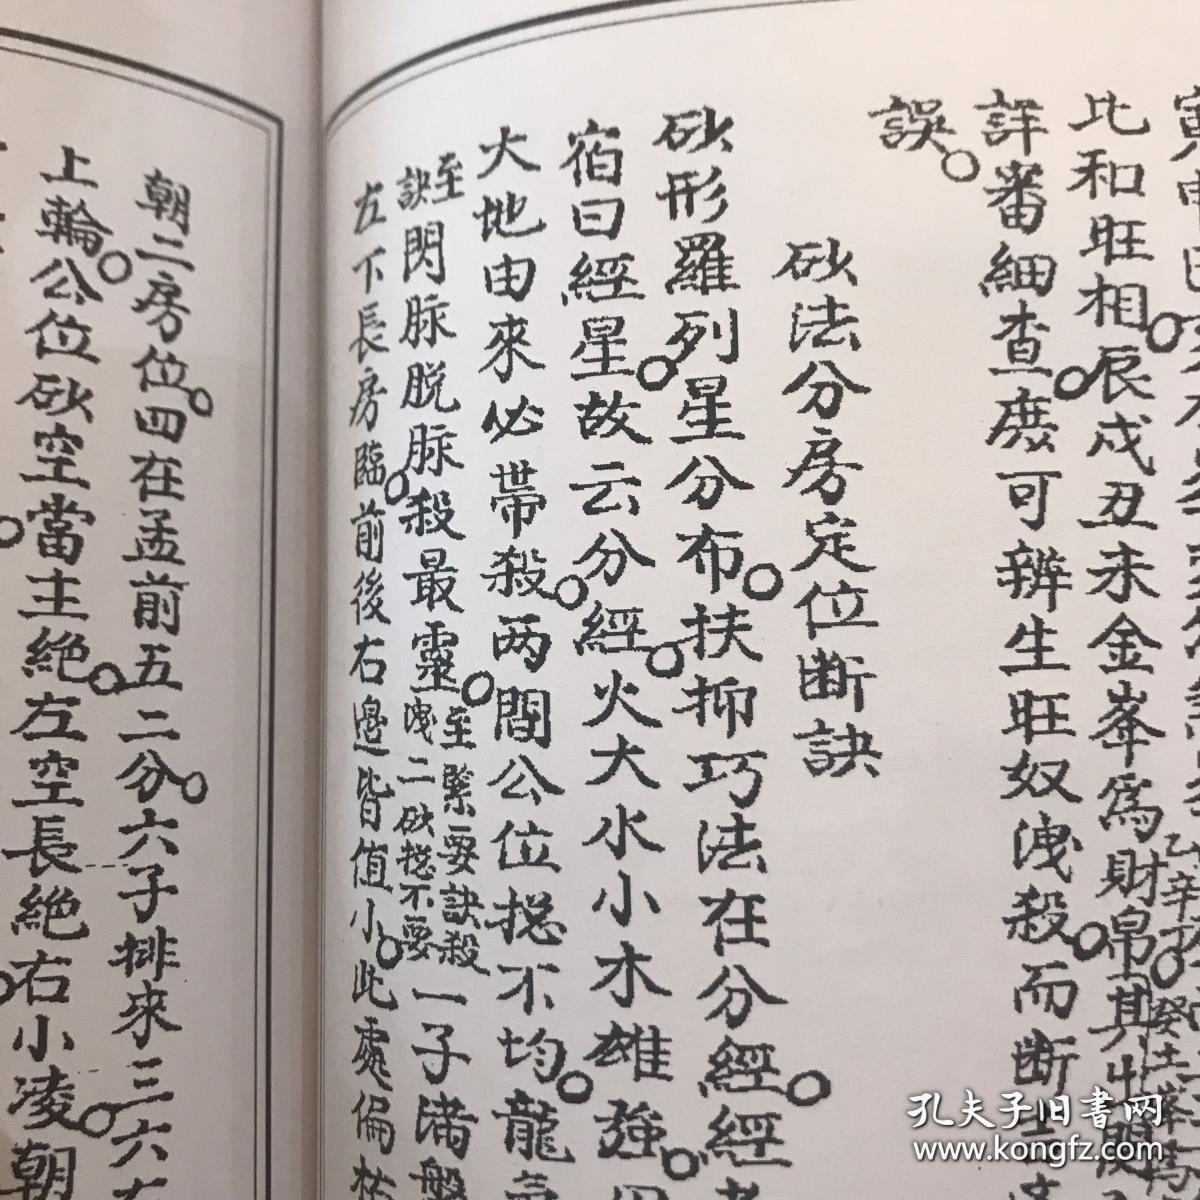 比和旺相。辰戌丑未金峯為財帛其出
詳審細查。庶可辨生旺奴洩殺。而断
誤。
砂法分房定位断訣
砂形羅列星分布。扶抑巧法在分經。經
宿曰經星。故云分經。火大水小木雄強。四
大地由來必帯殺。两間公位捴不均。龍
至訣閃脉脱脉殺最靈。至緊要訣殺洩二砂捴不要一子满盤
左下長房臨。前後右邊皆值小。此處偏枯
朝二房位。四在孟前五二分。六子排來三六
上輪。公位砂空當主絶。左空長絶右小凌。朝
孔夫子旧書网
www.kongfz.com